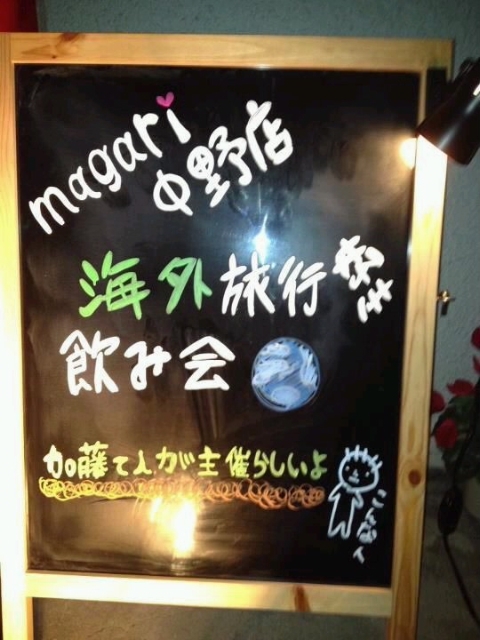 magari
中野店
海外旅行好き
飲み会
加藤て人が主催らしいよ
こんな人